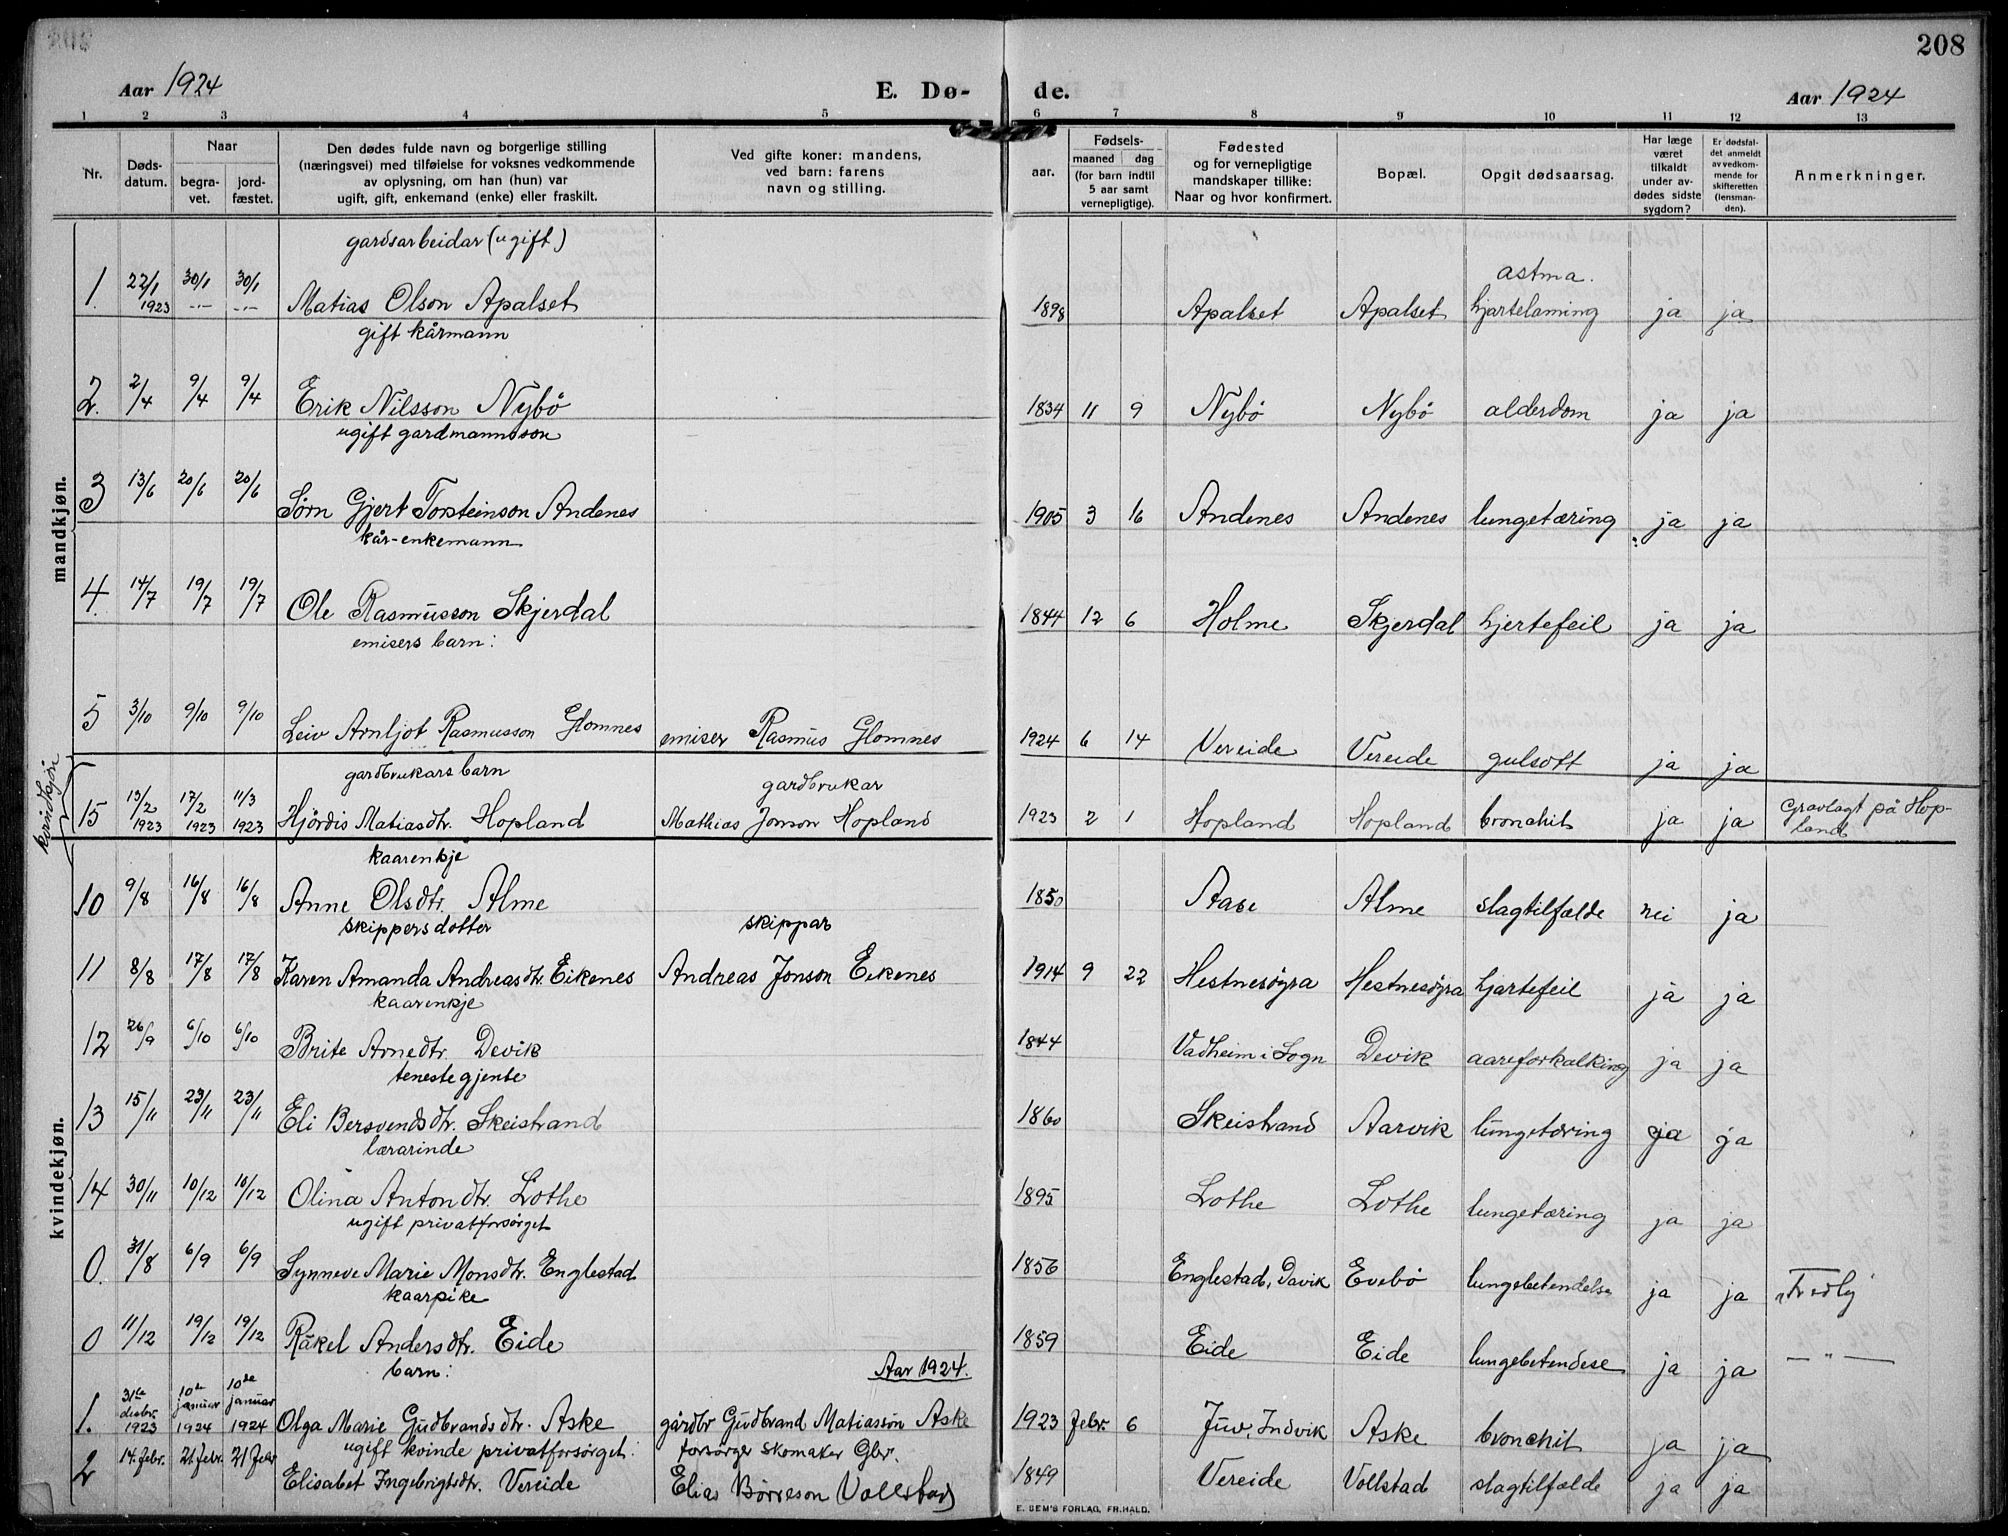 208
Aar 1924 E. Dø- de. Aar 1924
1 2 3 4 5 6 7 8 9 10 11 12 13
Nr. Døds-datum. Naar begra-vet. jord-fæstet. Den dødes fulde navn og borgerlige stilling (næringsvei) med tilføielse for voksnes vedkommende av oplysning, om han (hun) var ugift, gift, enkemand (enke) eller fraskilt. Ved gifte koner: mandens, ved barn: farens navn og stilling. aar. Fødsels- maaned dag (for barn indtil 5 aar samt vernepligtige). Fødested og for vernepligtige mandskaper tillike: Naar og hvor konfirmert. Bopæl. Opgit dødsaarsag. Har læge været tilkaldt under av-dødes sidste sygdom? Er dødsfal-det anmeldt av vedkom-mende for skifteretten (lensman-den). Anmerkninger.
mandkjøn.
gardsarbeidar (ugift) astma.
1. 22/1 1923 30/1 -"- 30/1 -"- Matias Olson Apalset 1898 Apalset Apalset hjartelaming ja ja
gift kårmann
2. 2/4 9/4 9/4 Erik Nilsson Nybø 1834 11 9 Nybø Nybø alderdom ja ja
ugift gardmannsson
3 13/6 20/6 20/6 Sørn Gjert Torsteinson Andenes 1905 3 16 Andenes Andenes lungetæring ja ja
kår-enkemann
4. 14/7 19/7 19/7 Ole Rasmusson Skjerdal 1844 12 6 Holme Skjerdal hjertefeil ja ja
emisers barn:
5 3/10 9/10 9/10 Leiv Arnljot Rasmusson Glomnes emiser Rasmus Glomnes 1924 6 14 Vereide Vereide gulsott ja ja
kvindkjøn
gardbrukars barn gardbrukar
15 13/2 1923 17/2 1923 11/3 1923 Hjördis Matiasdtr. Hopland Mathias Jonson Hopland 1923 2 1 Hopland Hopland bronchit ja ja Gravlagt på Hop-land
kvindekjøn.
kaarenkje
10 9/8 16/8 16/8 Anne Olsdtr. Alme 1850 Aase Alme slagtilfælde nei ja
skippersdotter skippar
11 8/8 17/8 17/8 Karen Amanda Andreasdtr. Eikenes Andreas Jonson Eikenes 1914 9 22 Hestnesøyra Hestnesøyra hjartefeil ja ja
kaarenkje
12 26/9 6/10 6/10 Brite Arnedtr. Devik 1844 Vadheim i Sogn Devik aareforkalking ja ja
tenestegjente
13 15/11 23/11 23/11 Eli Bersvendsdtr. Skeistrand 1860 Skeistrand Aarvik lungetæring ja ja
lærarinde
14 30/11 10/12 10/12 Olina Antondtr. Lothe 1895 Lothe Lothe lungetæring ja ja
ugift privatforsørget
0. 31/8 6/9 6/9 Synneve Marie Monsdtr. Englestad 1856 Englestad, Davik Evebø lungebetendelse ja ja "Fredly
kaarpike
0 11/12 19/12 19/12 Rakel Andersdtr. Eide 1859 Eide Eide lungebetendese ja ja — " —
barn: Aar 1924.
1. 31te desbr. 1923 10de januar 1924 10de januar 1924 Olga Marie Gudbrandsdtr. Aske gårdbr Gudbrand Matiasson Aske 1923 febr. 6 Juv, Indvik Aske bronchit ja ja
ugift kvinde privatforsørget: forsørger skomaker Gbr.
2 14. febr. 21. febr. 21 febr Elisabet Ingebrigtsdtr. Vereide Elias Børreson Vollstad 1849 Vereide Vollstad slagtilfælde ja ja
E. SEM'S FORLAG, FR.HALD.